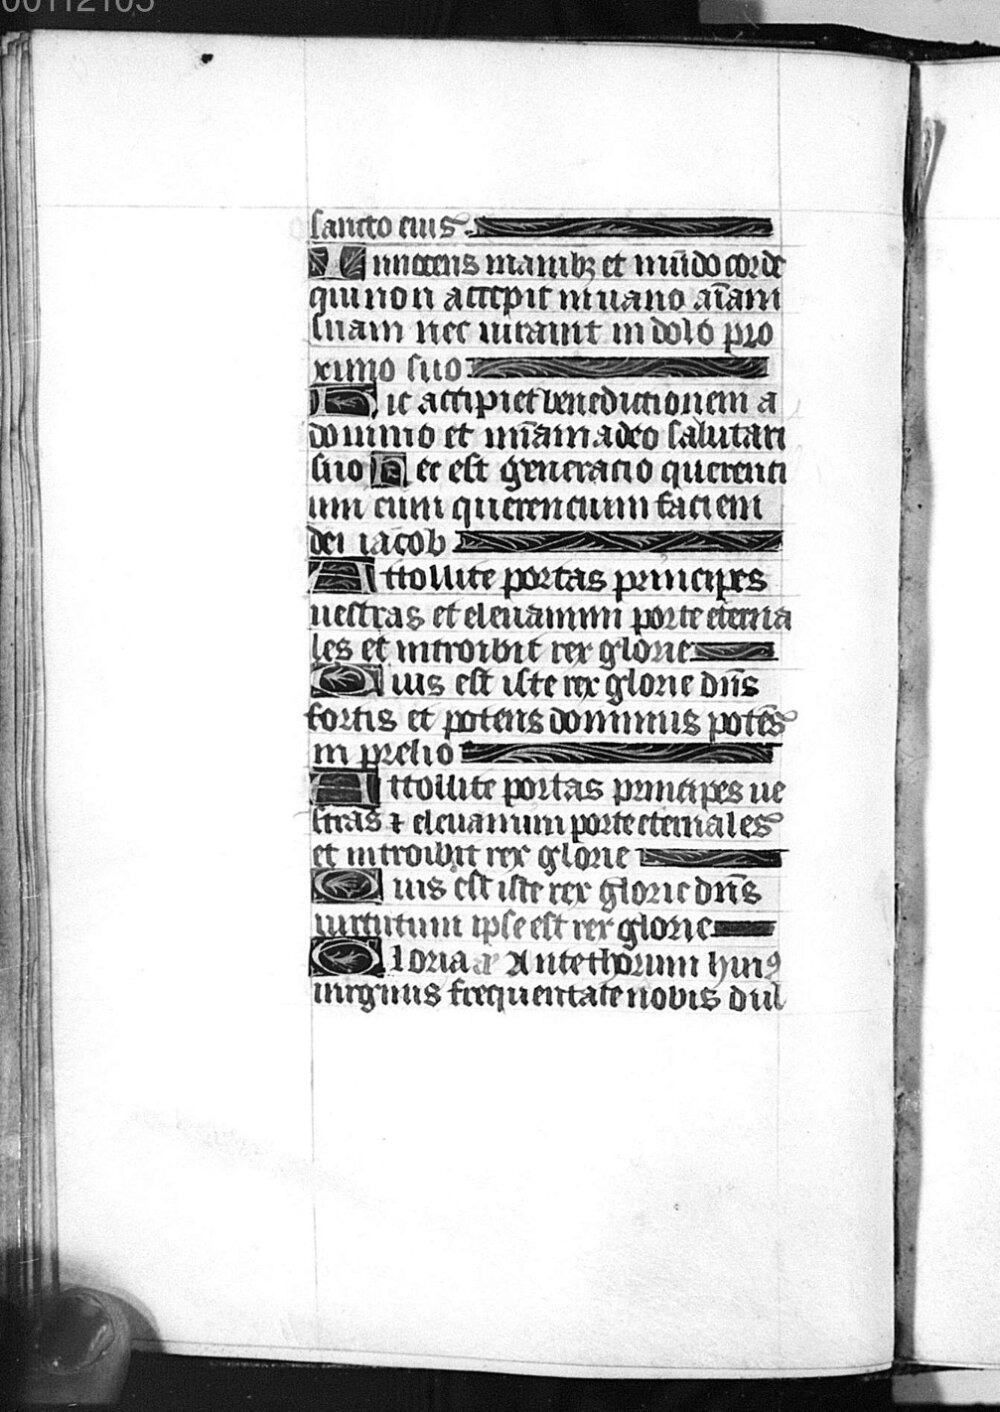 00112105
sancto eius
Innocens manibꝫ et mūdo corde
qui non accepit in uano aīam
suam nec iurauit in dolo pro
ximo suo
Hic accipiet benedictionem a
domino et mīam a deo salutari
suo Hec est generacio querenti
um eum querencium faciem
dei iacob
Attollite portas principes
uestras et eleuamini porte eterna
les et introibit rex glorie
Quis est iste rex glorie dn̄s
fortis et potens dominus potēs
in prelio
Attollite portas principes ue
stras ⁊ eleuamini porte eternales
et introibit rex glorie
Quis est iste rex glorie dn̄s
uirtutum ipse est rex glorie
Gloria Ante thorum huiꝰ
uirginis frequentate nobis dul